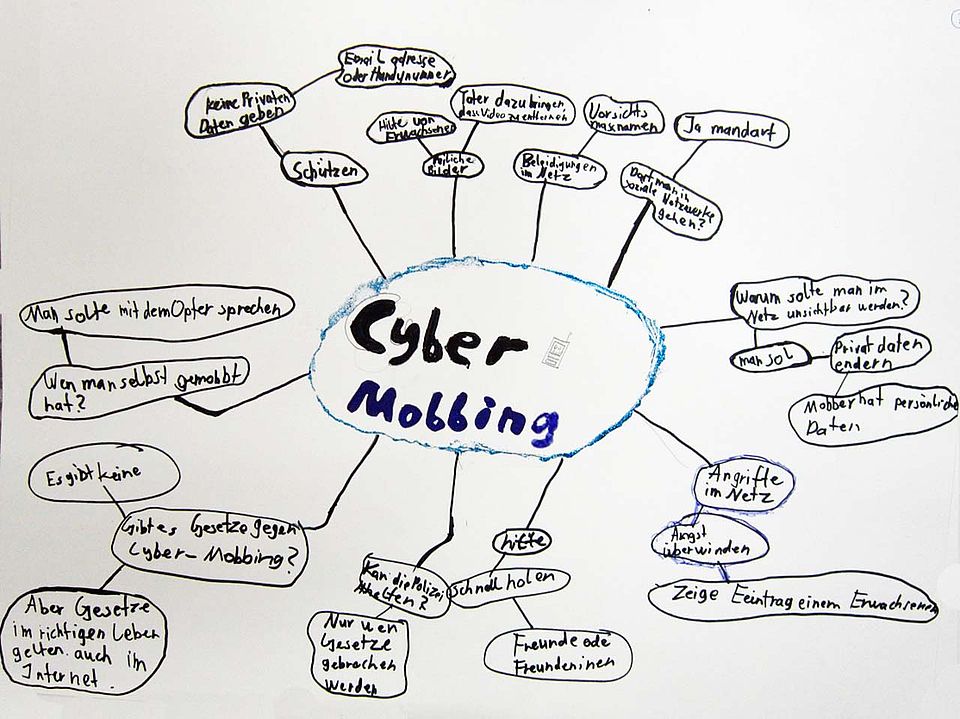 Cyber
Mobbing
Schützen
keine Privaten
Daten geben
Email adresse
oder Handynummer
Peiliche
Bilder
Hilfe von
Erwachsenen
Täter dazu bringen,
dass Video zu entfernen
Beleidigungen
im Netz
Vorsichts
massnamen
Darf man in
soziale Netzwerke
gehen?
Ja mandarf
Warum solte man im
Netz unsichtbar werden?
man sol
Privat daten
endern
Mobber hat persönliche
Daten
Angriffe
im Netz
Angst
überwinden
Zeige Eeintrag einem Erwachsenen
hilfe
schnell holen
Freunde ode
Freundeninen
Kan die Polizei
helfen?
Nur wen
Gesetze
gebrochen
werden
Gibt es Gesetze gegen
Cyber-Mobbing?
Es gibt keine
Aber Gesetze
im richtigen Leben
gelten auch im
Internet.
Wen man selbst gemobbt
hat?
Man solte mit dem Opfer sprechen